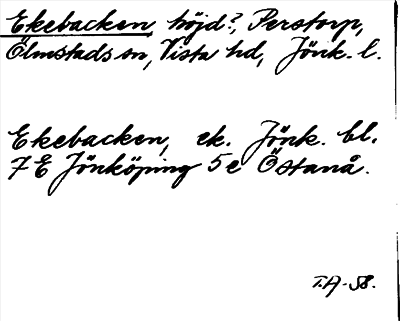 Ekebacken, höjd?, Perstorp,
Ölmstads sn, Vista hd, Jönk. l.
Ekebacken, ek. Jönk. bl.
7 E Jönköping 5 e Östanå.
T.A-58.